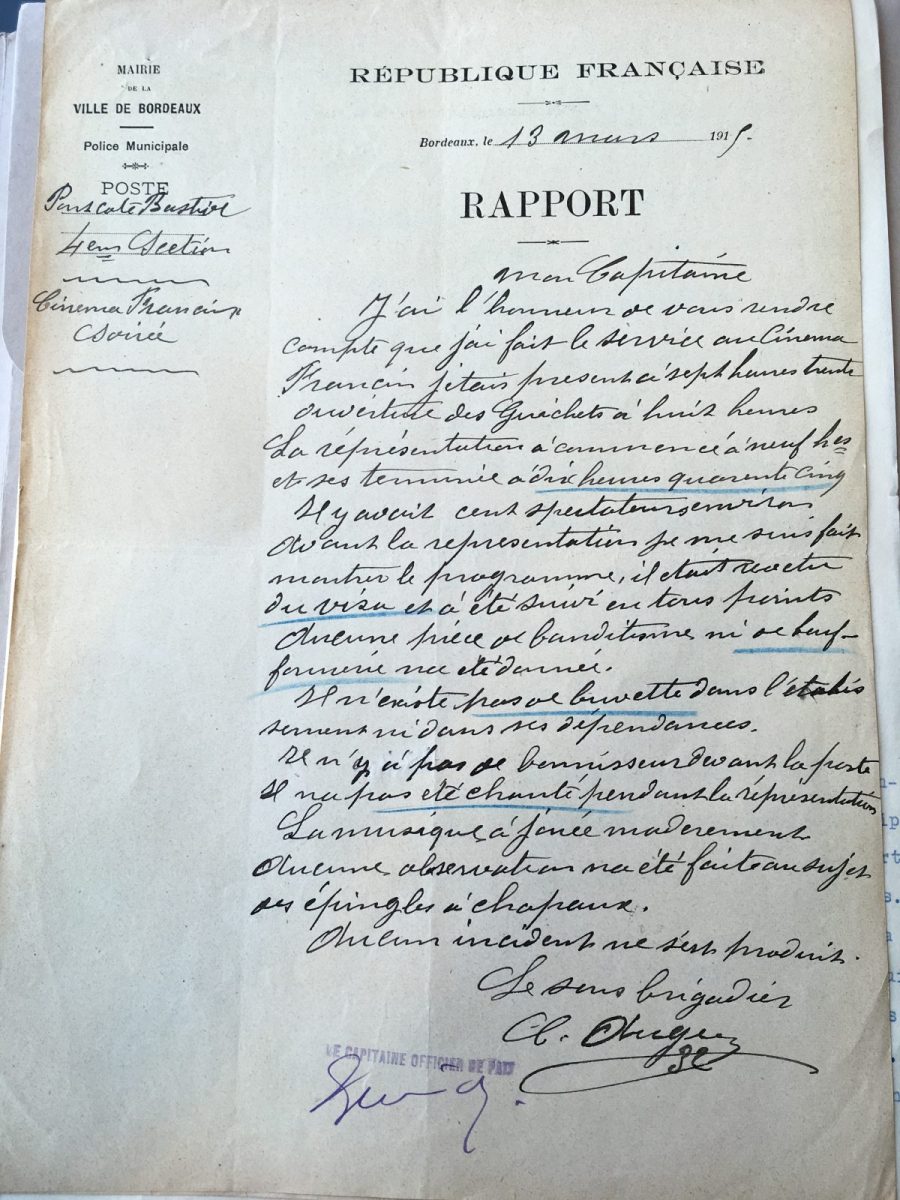 MAIRIE
DE LA
VILLE DE BORDEAUX
Police Municipale
POSTE
Pont coté Bastide
4em Section
Cinema Francais
Soirée
RÉPUBLIQUE FRANÇAISE
Bordeaux, le 13 mars 1915.
RAPPORT
Mon Capitaine
J'ai l'honneur de vous rendre
compte que j'ai fait le service au Cinema
Francais jetais present a sept heures trente
ouverture des Guichets à huit heures
La réprésentation à commencé à neuf hes
et ses terminée a dix heures quarente cinq
Il y avait cent spectateurs environ
Avant la representation je me suis fait
montrer le programme, il etait revetu
du visa et à été suivi en tous points
Aucune pièce de banditisme ni de bouf-
fonnerie na eté donnée.
Il n'existe pas de buvette dans l'établis
sement ni dans ses dépendances.
Il n'y à pas de bonnisseur devant la porte
Il na pas eté chanté pendant la réprésentation
La musique à jouée moderement
Aucune observation na été faite au sujet
des épingles à chapaux.
Aucun incident ne s'est produit.
Le sous brigadier
LE CAPITAINE OFFICIER DE PAIX